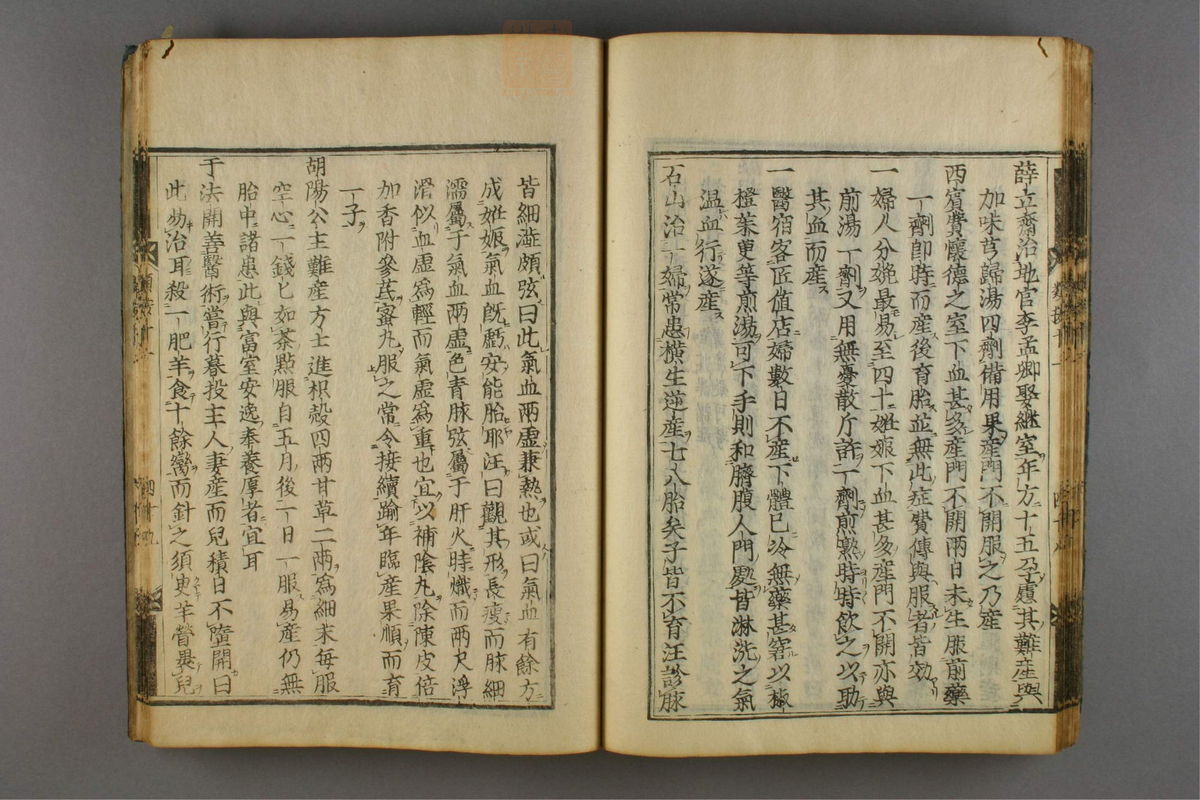 薛立齋治地官李孟卿娶継室年方十五孕慮其難産與
加味芎歸湯四劑備用果産門不開服之乃産
西賓費懷德之室下血甚多産門不開兩日未生服前藥
一劑卽時而産後育胎並無此症費傳與服者皆効
一婦人分娩最易至四十妊娠下血甚多産門不開亦與
前湯一劑又用無憂散斤許一劑煎熟時時飲之以助
其血而産
一醫宿客店值店婦數日不産下體已冷無藥甚窘以椒
橙茱萸等煎湯可下手則和臍腹人門處皆淋洗之氣
温血行遂産
石山治一婦常患横生逆産七八胎矣子皆不育汪診脉
皆細澁頗弦曰此氣血兩虚兼熱也或曰氣血有餘方
成妊娠氣血旣虧安能胎耶汪曰觀其形長瘦而脉細
濡屬于氣血兩虚色青脉弦屬于肝火時熾而兩尺浮
滑似血虚爲輕而氣虚爲重也宜以補陰丸除陳皮倍
加香附參芪蜜丸服之常令接續踰年臨産果順而育
一子
胡陽公主難産方士進枳殻四兩甘草二兩爲細末毎服
空心一錢匕如茶點服自五月後一日一服易産仍無
胎中諸患此與富室安逸奉養厚者宜耳
于法開善醫術嘗行暮投主人妻産而兒積日不墮開曰
此易治耳殺一肥羊食十餘臠而針之須臾羊膋褁兒